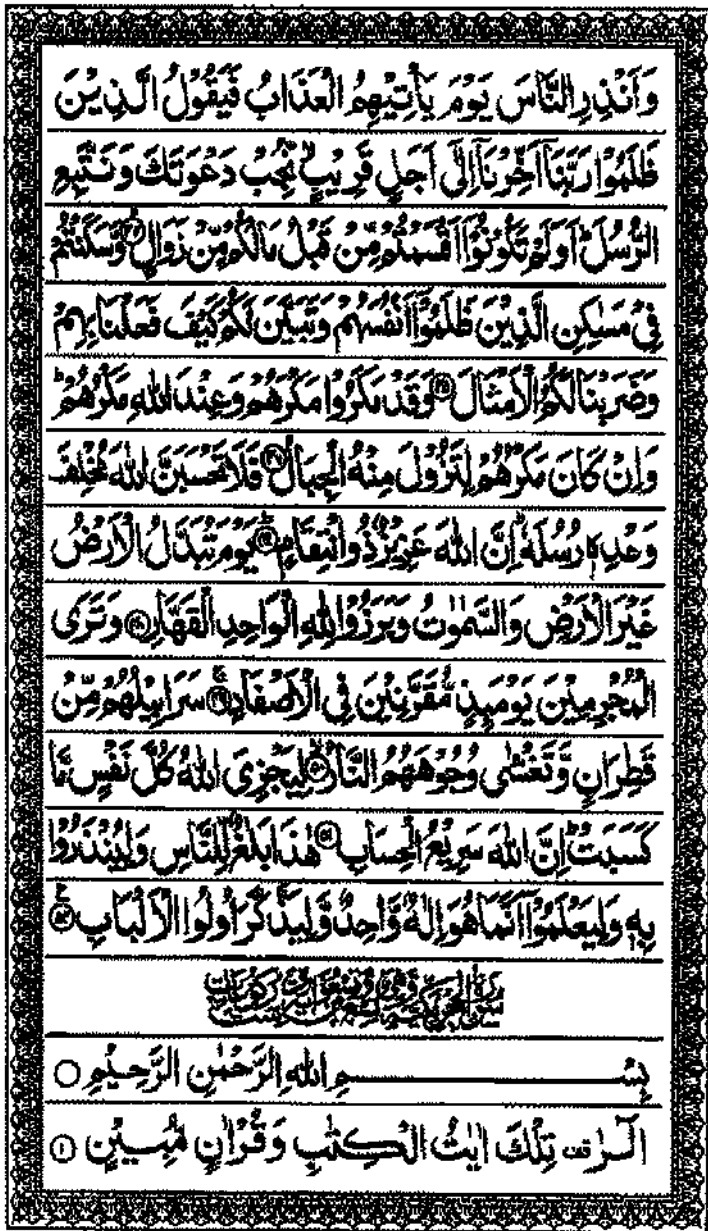 وَاَنْذِرِ النَّاسَ يَوْمَ يَاْتِيْهِمُ الْعَذَابُ فَيَقُوْلُ الَّذِيْنَ
ظَلَمُوْا رَبَّنَاۤ اَخِّرْنَاۤ اِلٰۤى اَجَلٍ قَرِيْبٍ ۙ نُّجِبْ دَعْوَتَكَ وَنَتَّبِعِ
الرُّسُلَ ؕ اَوَلَمْ تَكُوْنُوْۤا اَقْسَمْتُمْ مِّنْ قَبْلُ مَالَكُمْ مِّنْ زَوَالٍ ۙ﴿۴۴﴾ وَّسَكَنْتُمْ
فِيْ مَسٰكِنِ الَّذِيْنَ ظَلَمُوْۤا اَنْفُسَهُمْ وَتَبَيَّنَ لَكُمْ كَيْفَ فَعَلْنَا بِهِمْ
وَضَرَبْنَا لَكُمُ الْاَمْثَالَ ﴿۴۵﴾ وَقَدْ مَكَرُوْا مَكْرَهُمْ وَعِنْدَ اللّٰهِ مَكْرُهُمْ ؕ
وَاِنْ كَانَ مَكْرُهُمْ لِتَزُوْلَ مِنْهُ الْجِبَالُ ﴿۴۶﴾ فَلَا تَحْسَبَنَّ اللّٰهَ مُخْلِفَ
وَعْدِهٖ رُسُلَهٗ ؕ اِنَّ اللّٰهَ عَزِيْزٌ ذُوانْتِقَامٍ ؕ﴿۴۷﴾ يَوْمَ تُبَدَّلُ الْاَرْضُ
غَيْرَ الْاَرْضِ وَالسَّمٰوٰتُ وَبَرَزُوْا لِلّٰهِ الْوَاحِدِ الْقَهَّارِ ﴿۴۸﴾ وَتَرَى
الْمُجْرِمِيْنَ يَوْمَىِٕذٍ مُّقَرَّنِيْنَ فِي الْاَصْفَادِ ۚ﴿۴۹﴾ سَرَابِيْلُهُمْ مِّنْ
قَطِرَانٍ وَّتَغْشٰى وُجُوْهَهُمُ النَّارُ ۙ﴿۵۰﴾ لِيَجْزِيَ اللّٰهُ كُلَّ نَفْسٍ مَّا
كَسَبَتْ ؕ اِنَّ اللّٰهَ سَرِيْعُ الْحِسَابِ ﴿۵۱﴾ هٰذَا بَلٰغٌ لِّلنَّاسِ وَلِيُنْذَرُوْا
بِهٖ وَلِيَعْلَمُوْۤا اَنَّمَا هُوَ اِلٰهٌ وَّاحِدٌ وَّلِيَذَّكَّرَ اُولُوا الْاَلْبَابِ ﴿۵۲﴾
بِسْمِ اللّٰهِ الرَّحْمٰنِ الرَّحِيْمِ ○
الٓرٰ ۫ تِلْكَ اٰيٰتُ الْكِتٰبِ وَقُرْاٰنٍ مُّبِيْنٍ ﴿۱﴾